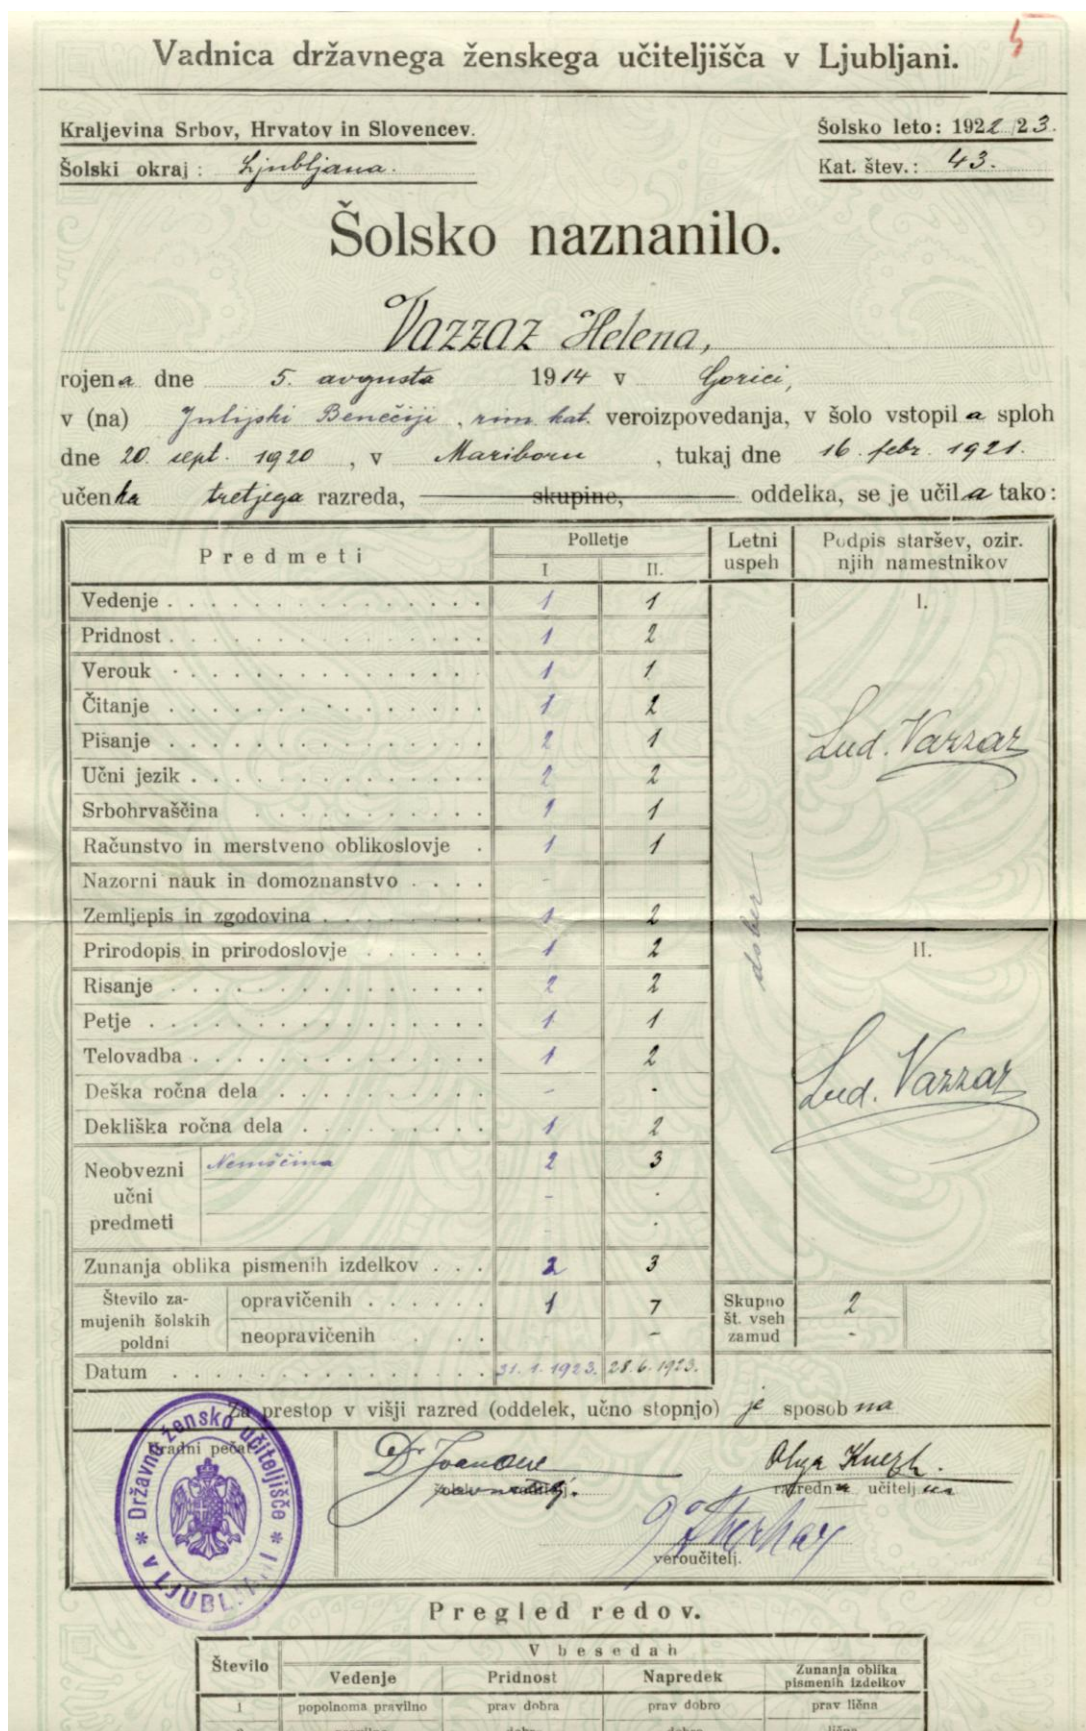 5
Vadnica državnega ženskega učiteljišča v Ljubljani.
Kraljevina Srbov, Hrvatov in Slovencev.
Šolsko leto: 1922/23.
Šolski okraj: Ljubljana.
Kat. štev.: 43.
Šolsko naznanilo.
Vazzaz Helena,
rojena dne 5. avgusta 1914 v Gorici,
v (na) Julijski Benečiji, rim. kat. veroizpovedanja, v šolo vstopila sploh
dne 20. sept. 1920, v Mariboru, tukaj dne 16. febr. 1921.
učenka tretjega razreda, skupine, oddelka, se je učila tako:
Predmeti Polletje Letni uspeh Podpis staršev, ozir. njih namestnikov
I II.
Vedenje 1 1 I.
Pridnost 1 2
Verouk 1 1
Čitanje 1 2
Pisanje 2 1 Lud. Vazzaz
Učni jezik 2 2
Srbohrvaščina 1 1
Računstvo in merstveno oblikoslovje 1 1
Nazorni nauk in domoznanstvo -
Zemljepis in zgodovina 1 2 dober
Prirodopis in prirodoslovje 1 2 II.
Risanje 2 2
Petje 1 1
Telovadba 1 2
Deška ročna dela - . Lud. Vazzaz
Dekliška ročna dela 1 2
Neobvezni učni predmeti Nemščina 2 3
- .
- .
Zunanja oblika pismenih izdelkov 2 3
Število zamujenih šolskih poldni opravičenih 1 7 Skupno št. vseh zamud 2
neopravičenih - -
Datum 31. 1. 1923. 28. 6. 1923.
Za prestop v višji razred (oddelek, učno stopnjo) je sposobna
Uradni pečat
Državno žensko učiteljišče
v LJUBLJANI
Dr
Olga
razredna učiteljica
veroučitelj.
Pregled redov.
Število V besedah
Vedenje Pridnost Napredek Zunanja oblika pismenih izdelkov
1 popolnoma pravilno prav dobra prav dobro prav lična